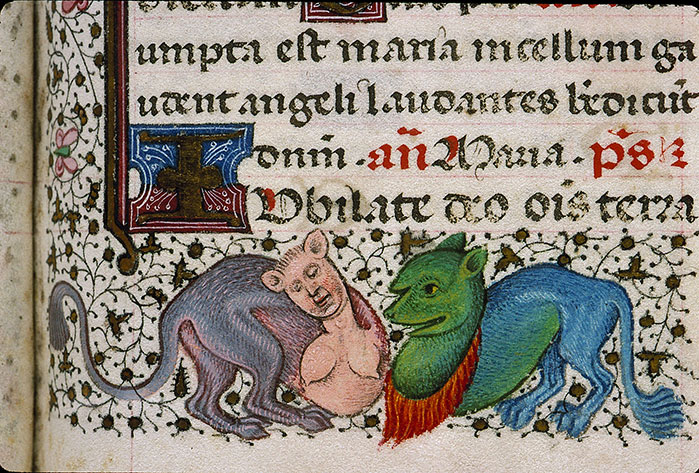 umpta est maria in cellum ga
udent angeli laudantes bñdicũt
dnm̃. añ Maria. p̃s
Iubilate deo oĩs terra